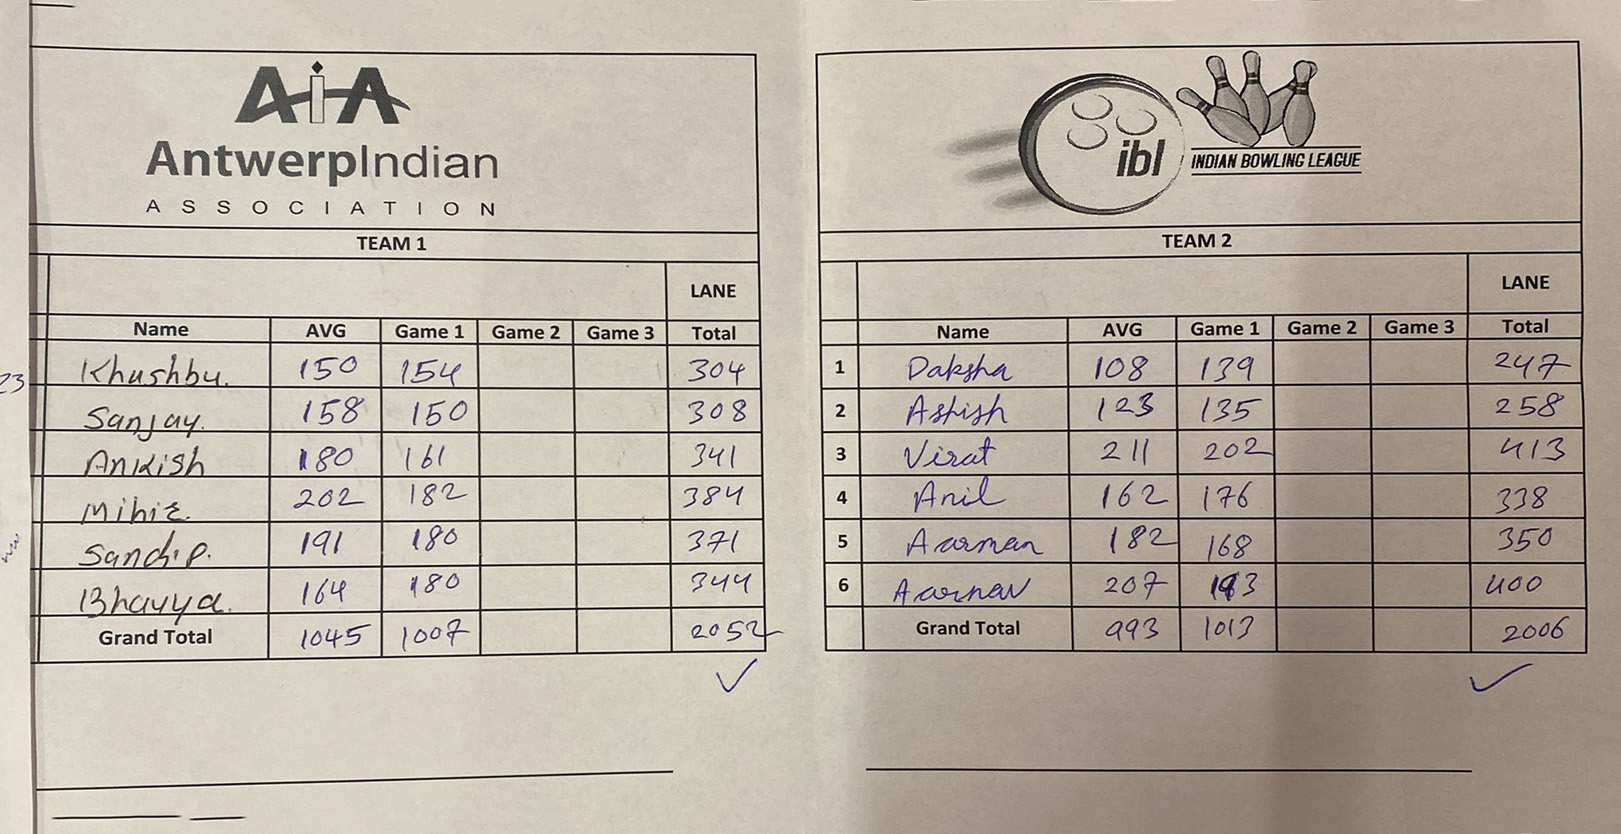 AiA
AntwerpIndian
ASSOCIATION
TEAM 1
LANE
Name AVG Game 1 Game 2 Game 3 Total
23
Khushbu. 150 154 304
Sanjay. 158 150 308
Ankish 180 161 341
Mihir. 202 182 384
Sandip. 191 180 371
Bhavya. 164 180 344
Grand Total 1045 1007 2052
ibl INDIAN BOWLING LEAGUE
TEAM 2
LANE
Name AVG Game 1 Game 2 Game 3 Total
1 Daksha 108 139 247
2 Ashish 123 135 258
3 Virat 211 202 413
4 Anil 162 176 338
5 Aarman 182 168 350
6 Aarnav 207 193 400
Grand Total 993 1013 2006